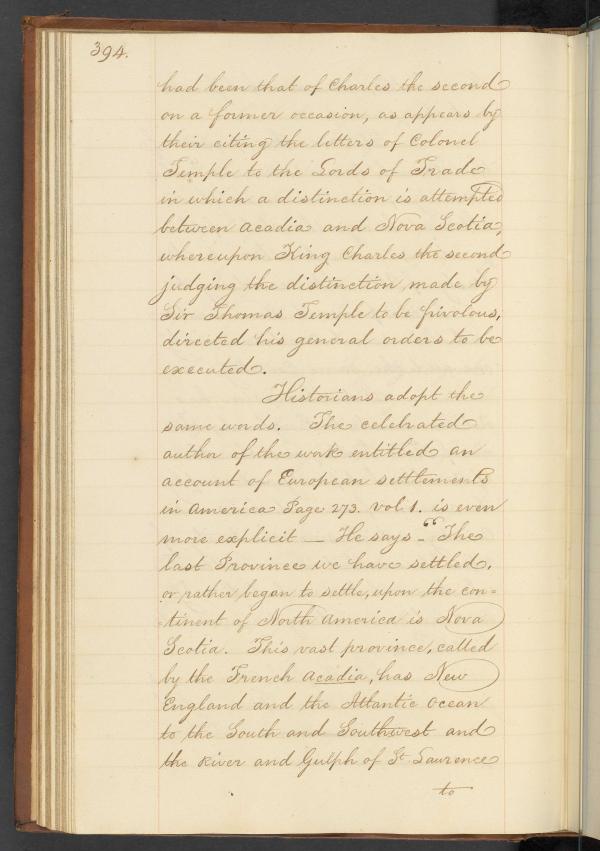 394.
had been that of Charles the second
on a former occasion, as appears by
their citing the letters of Colonel
Temple to the Lords of Trade
in which a distinction is attempted
between Acadia and Nova Scotia,
whereupon King Charles the second
judging the distinction made by
Sir Thomas Temple to be frivolous,
directed his general orders to be
executed.
Historians adopt the
same words. The celebrated
author of the work entitled an
account of European settlements
in America Page 273. vol 1. is even
more explicit — He says - "The
last Province we have settled,
or rather began to settle, upon the con=
tinent of North America is Nova
Scotia. This vast province, called
by the French Acadia, has New
England and the Atlantic Ocean
to the South and Southwest and
the River and Gulph of St Laurence
to